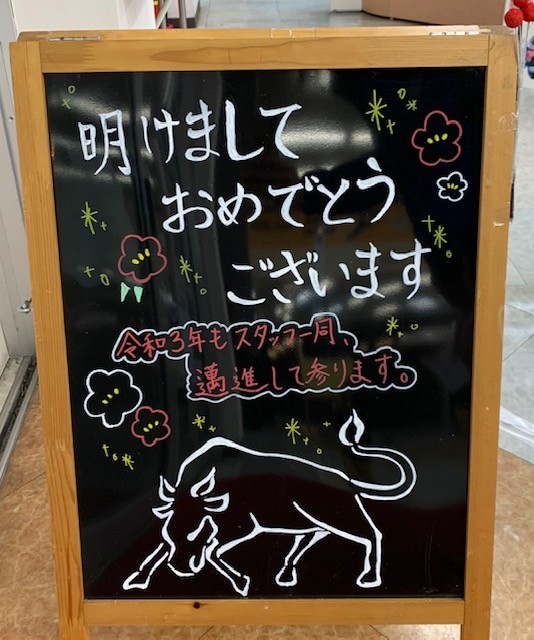 明けまして
おめでとう
ございます
令和3年もスタッフ一同、
邁進して参ります。